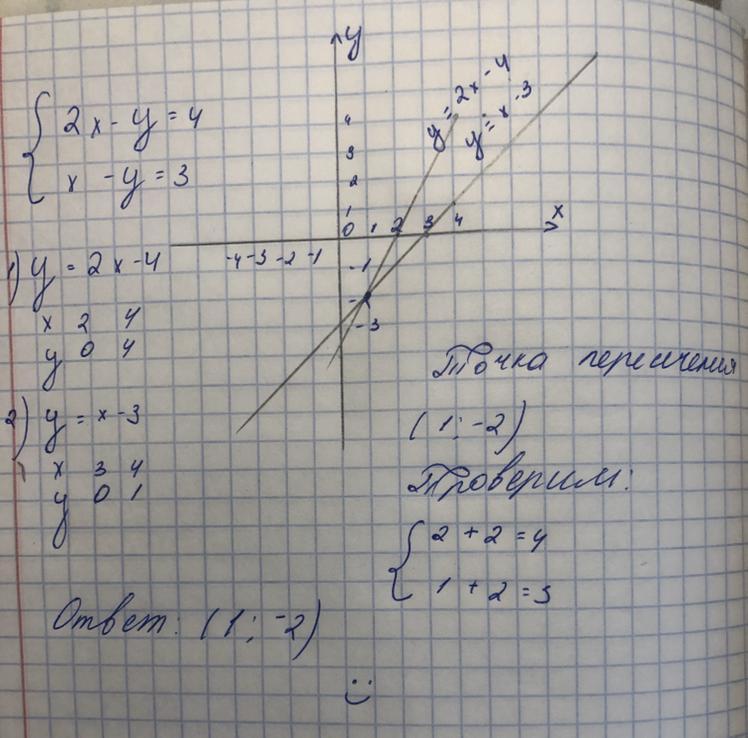 2x - y = 4
x - y = 3
1) y = 2x - 4
x 2 4
y 0 4
2) y = x - 3
x 3 4
y 0 1
y
y = 2x - 4
y = x - 3
4
3
2
1
0 1 2 3 4 x
-4 -3 -2 -1
-1
-3
Точка пересечения
(1; -2)
Проверим:
2 + 2 = 4
1 + 2 = 3
Ответ: (1; -2)
:)